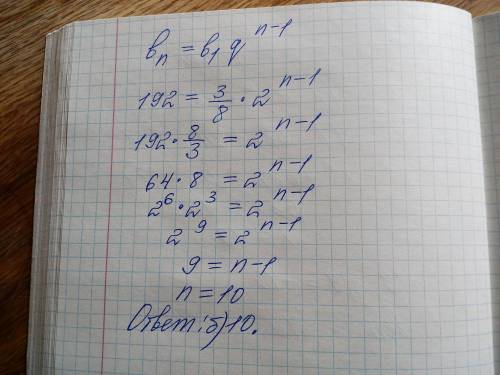 bₙ = b₁ q^(n-1)
192 = 3/8 · 2^(n-1)
192 · 8/3 = 2^(n-1)
64 · 8 = 2^(n-1)
2^6 · 2^3 = 2^(n-1)
2^9 = 2^(n-1)
9 = n-1
n = 10
Ответ: б) 10.